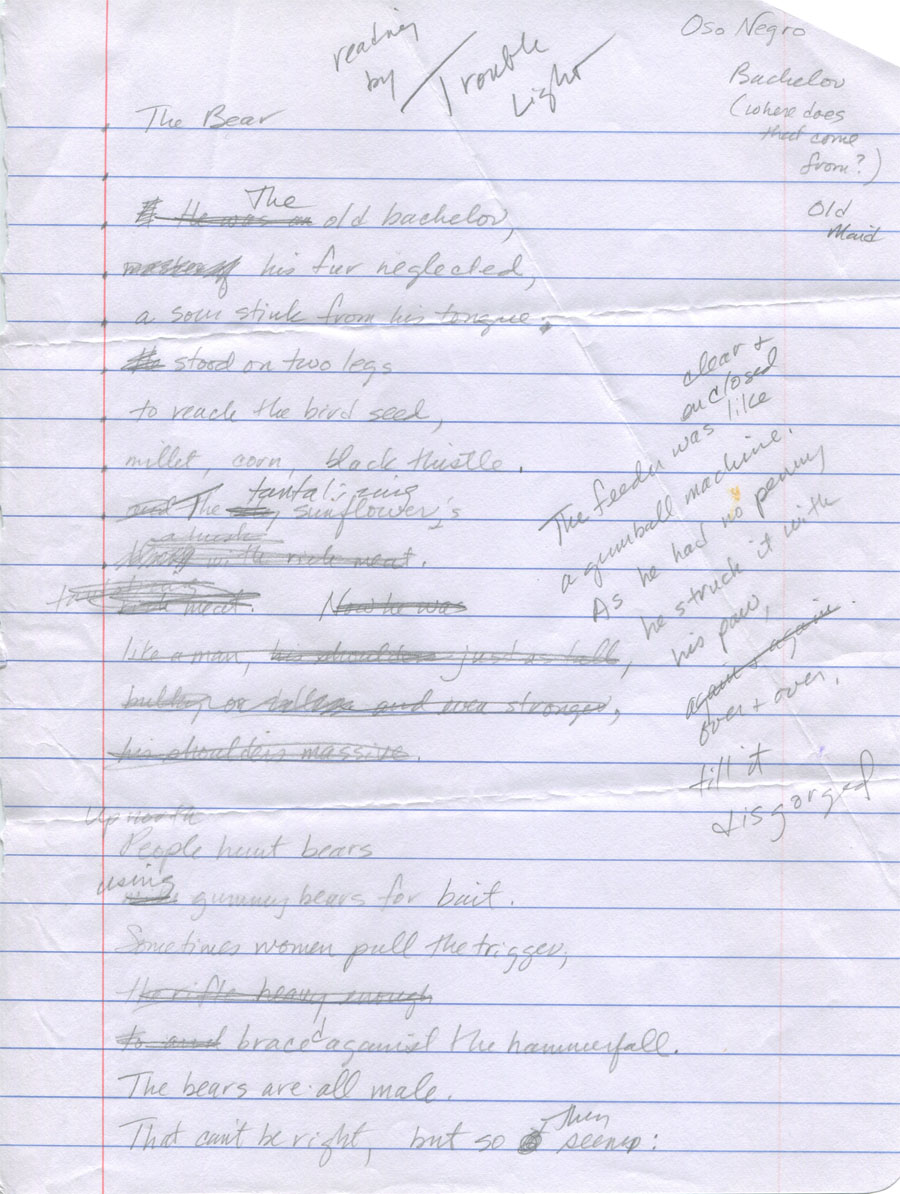 reading
by / Trouble
Light
Oso Negro
Bachelor
(where does
that come
from?)
Old
Maid
The Bear
The
He was an old bachelor,
his fur neglected,
a sour stink from his tongue.
stood on two legs
to reach the bird seed,
millet, corn, black thistle.
tantalizing
and The sunflower's
a husk
with rich meat.
meat. Now he was
like a man, his shoulders just as tall,
bulky or taller and even stronger,
his shoulders massive.
clear +
enclosed
The feeder was like
a gumball machine.
As he had no penny
he struck it with
his paw,
again + again.
over + over,
till it
disgorged
Up north
People hunt bears
using
gummy bears for bait.
Sometimes women pull the trigger,
the rifle heavy enough
to and braced against the hammerfall.
The bears are all male.
They
That can't be right, but so seem: